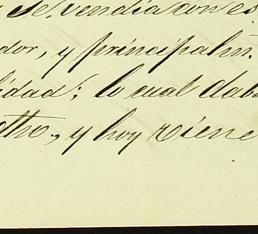 se vendia con es
dor, y principalm.
lidad; lo cual daba
otho, y hoy viene